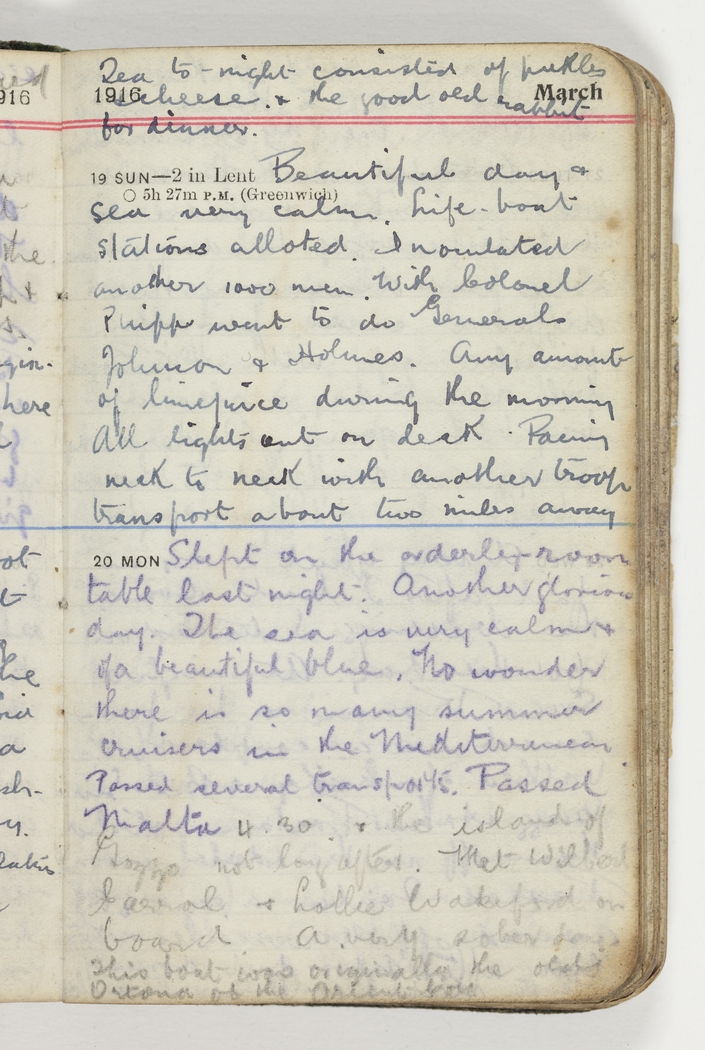 Tea to-night consisted of pickles
1916 March
& cheese & the good old rabbit
for dinner.
19 SUN—2 in Lent Beautiful day &
○ 5h 27m P.M. (Greenwich)
sea very calm. Life-boat
stations alloted. Inoculated
another 1000 men. With Colonel
Phipp went to do Generals
Johnson & Holmes. Any amount
of limejuice during the morning
All lights out on deck. Racing
neck to neck with another troop
transport about two miles away
20 MON Slept on the orderly-room
table last night. Another glorious
day. The sea is very calm &
of a beautiful blue. No wonder
there is so many summer
cruisers in the Mediterranean
Passed several transports. Passed
Malta 4.30. & the island of
Gozzo not long after. Met Wilbert
Carrol & Lollie Wakeford on
board. A very sober
This boat was originally the old
Ortona of the Orient
916
the
here
he
a
sh-
y.